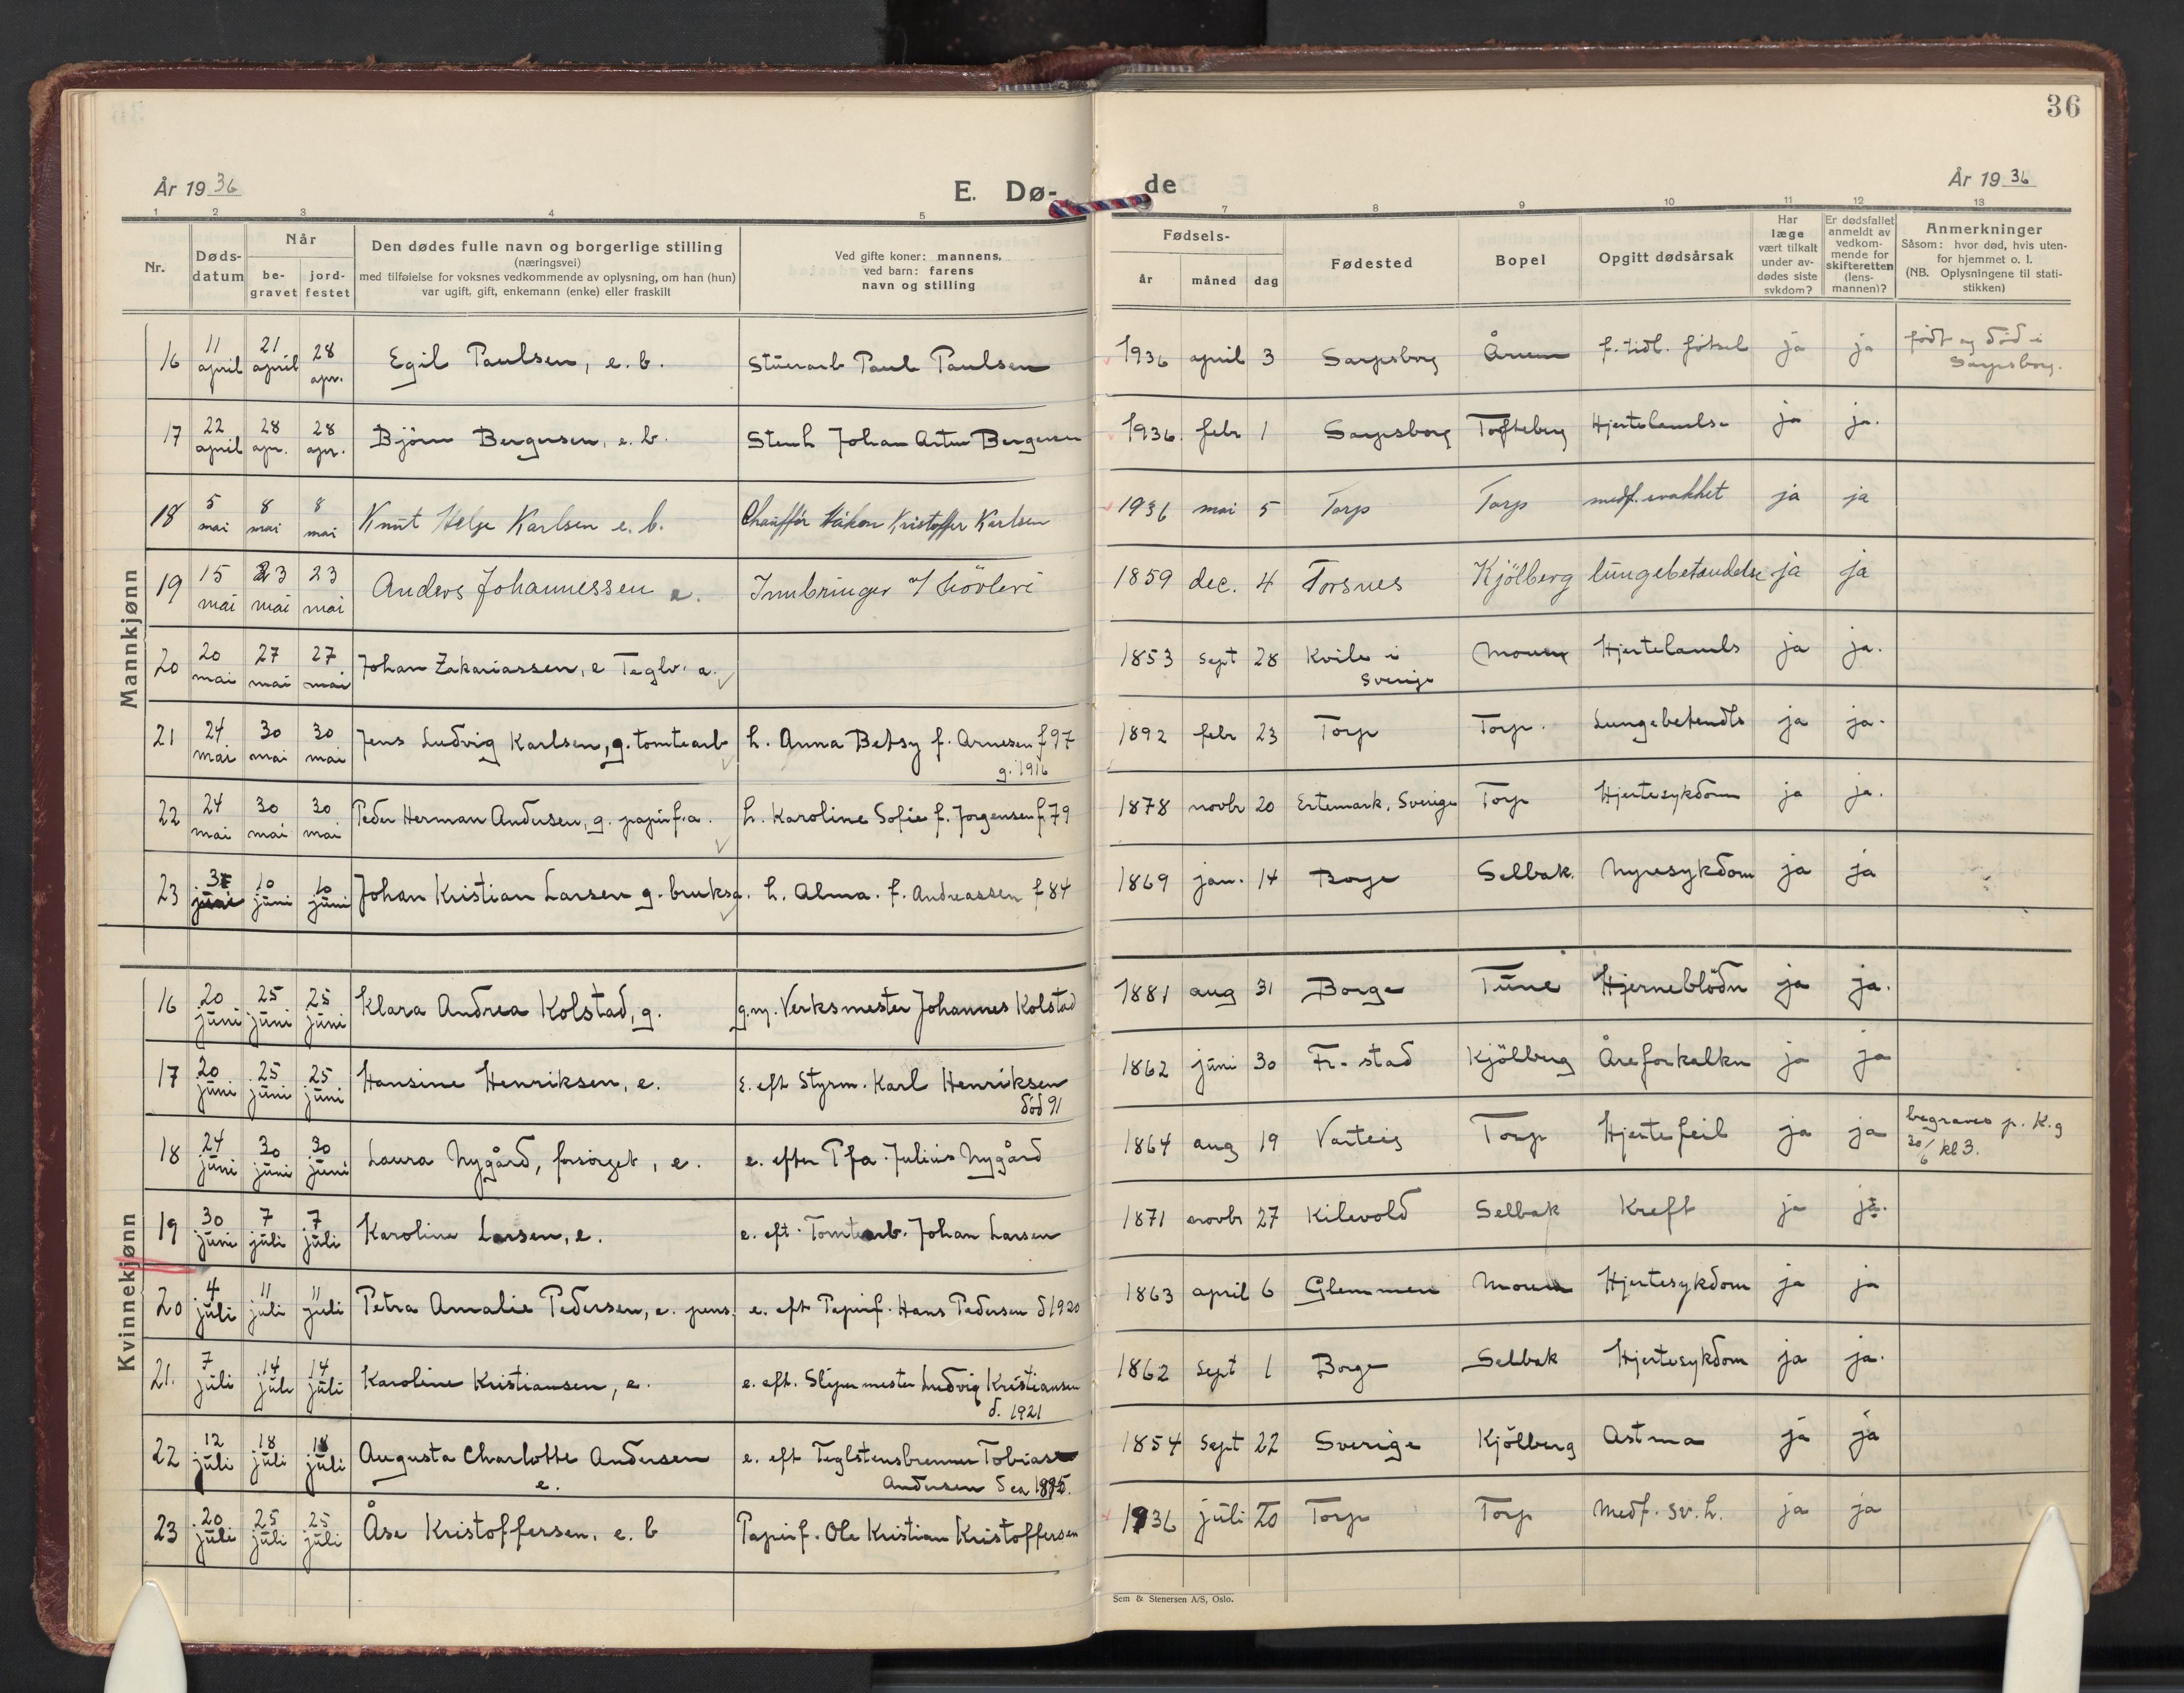 36
År 1936
E. Dø-
de
År 1936
1 2 3 4 5 7 8 9 10 11 12 13
Nr.
Døds-
datum
Når
be-
gravet
jord-
festet
Den dødes fulle navn og borgerlige stilling
(næringsvei)
med tilføielse for voksnes vedkommende av oplysning, om han (hun)
var ugift, gift, enkemann (enke) eller fraskilt
Ved gifte koner: mannens,
ved barn: farens
navn og stilling
Fødsels-
år måned dag
Fødested
Bopel
Opgitt dødsårsak
Har
læge
vært tilkalt
under av-
dødes siste
sykdom?
Er dødsfallet
anmeldt av
vedkom-
mende for
skifteretten
(lens-
mannen)?
Anmerkninger
Såsom: hvor død, hvis uten-
for hjemmet o. l.
(NB. Oplysningene til stati-
stikken)
Mannkjønn
16 11 april 21 april 28 apr. Egil Paulsen, e. b. Stüerarb Paul Paulsen 1936 april 3 Sarpsborg Årum f. tidl. fötsel ja ja födt og död i
Sarpsborg.
17 22 april 28 apr. 28 apr. Björn Bergersen, e. b. Stenh Johan Artur Bergersen 1936. febr 1 Sarpsborg Tofteberg Hjertelamelse ja ja.
18 5 mai 8 mai 8 mai Knut Helge Karlsen e. b. Chaufför Håkon Kristoffer Karlsen 1936 mai 5 Torp Torp medf. svakhet ja ja
19 15 mai 23 mai 23 mai Anders Johannessen e. Innbringer v/ Hövleri 1859 dec. 4 Torsnes Kjölberg lüngebetændelse ja ja
20 20 mai 27 mai 27 mai Johan Zakariassen, e Teglv. a. 1853 sept 28 Kvile i Moum Hjertelamels ja ja.
Sverige
21 24 mai 30 mai 30 mai Jens Ludvig Karlsen, g. tomtearb h. Anna Betsy f. Arnesen f 97 1892 febr 23 Torp Torp. Lungebetendls ja ja.
g. 1916
22 24 mai 30 mai 30 mai Peder Herman Andersen, g. papirf.a. h. Karoline Sofie f. Jorgensen f. 79 1878 novbr 20 Ertemark, Sverige Torp Hjertesykdom ja ja.
23 3 juni 10 jüni 10 jüni Johan Kristian Larsen g. bruksa. h. Alma. f. Andreassen f 84 1869 jan. 14 Borge Selbak. Nyresykdom ja ja
Kvinnekjønn
16 20 jüni 25 jüni 25 jüni Klara Andrea Kolstad, g. g.m. Verksmester Johannes Kolstad 1881 aug 31 Borge Tüne Hjerneblödn ja ja.
17 20 jüni 25 jüni 25 jüni Hansine Henriksen, e. E. eft Styrm. Karl Henriksen 1862 jüni 30 Fr. stad Kjölberg Åreforkalkn ja ja
död 91
18 24 jüni 30 jüni 30 jüni Laura Nygård, forsörget, e. e. efter Pfa. Julius Nygård 1864 aug 19 Varteig Torp Hjertefeil ja ja begraves p. K.g
30/6 kl 3.
19 30 jüni 7 jüli 7 jüli Karoline Larsen, e. e. eft. Tomtearb. Johan Larsen 1871 novbr 27 Kilevold Selbak Kreft ja ja.
20 4 jüli 11 jüli 11 jüli Petra Amalie Pedersen, e. pens. e. eft Papirf. Hans Pedersen d 1920 1863 april 6 Glemmen Moum Hjertesykdom ja ja
21. 7 jüli 14 jüli 14 jüli Karoline Kristiansen, e. e. eft. Slipermester Ludvig Kristiansen 1862 sept 1 Borge Selbak Hjertesykdom ja ja.
d. 1921
22 12 jüli 18 jüli 18 jüli Augusta Charlotte Andersen e. eft Teglstensbrenner Tobias 1854 Sept 22 Sverige Kjölberg Astma ja ja
e. Andersen d ca 1895.
23 20 jüli 25 jüli 25 jüli Åse Kristoffersen, e. b Papirf. Ole Kristian Kristoffersen 1936 jüli 20 Torp Torp Medf. sv. h. ja ja
Sem & Stenersen A/S, Oslo.